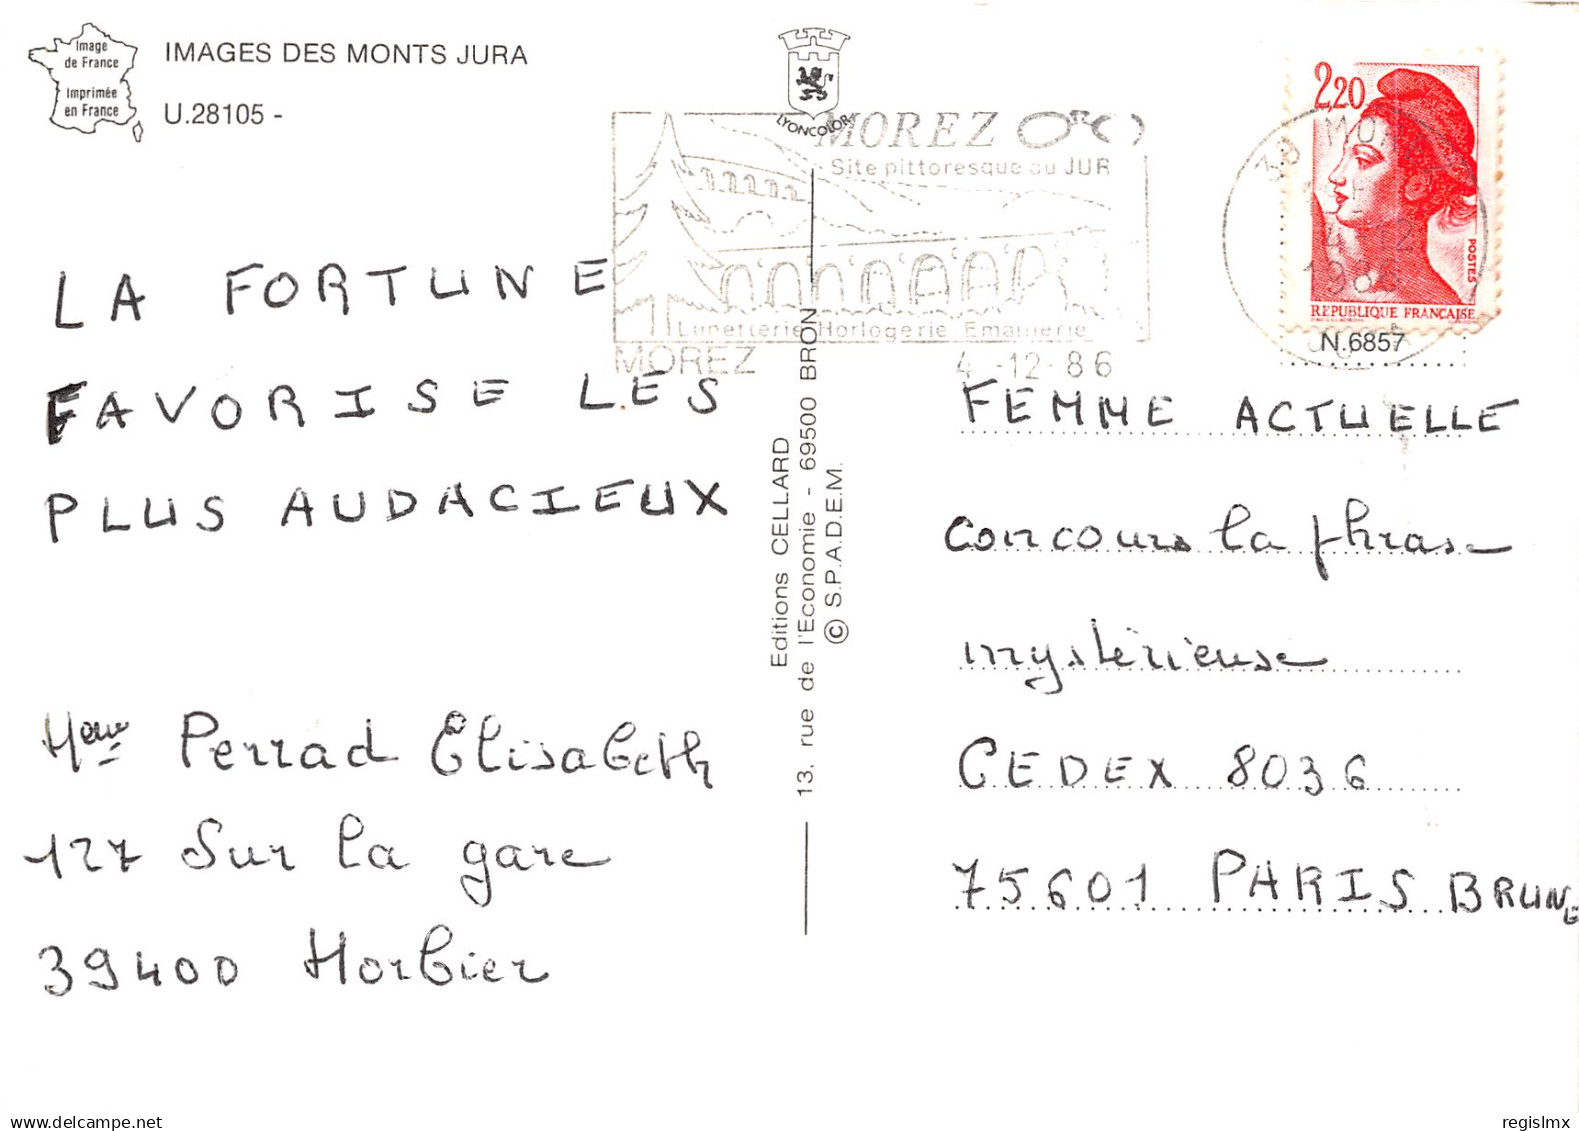 Image
de France
Imprimée
en France
IMAGES DES MONTS JURA
U.28105 -
LYONCOLOR
MOREZ
Site pittoresque du JUR
Lunetterie Horlogerie Emaillerie
MOREZ 4-12-86
2,20
POSTES
REPUBLIQUE FRANCAISE
N.6857
39 MOREZ
4-12
1986
LA FORTUNE
FAVORISE LES
PLUS AUDACIEUX
Mme Perrad Elisabeth
127 Sur la gare
39400 Morbier
Editions CELLARD
13, rue de l'Economie - 69500 BRON
© S.P.A.D.E.M.
FEMME ACTUELLE
concours la phrase
mystérieuse
CEDEX 8036
75601 PARIS BRUNE
regislmx